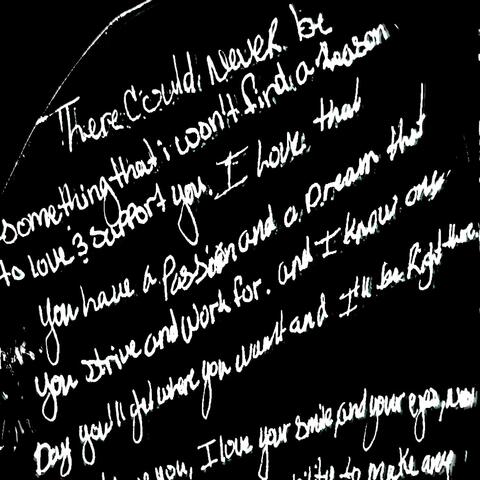 There Could Never be
something that i won't find a reason
to love & support you. I Love that
you have a Passion and a Dream that
you strive and work for. and I know one
Day you'll get where you want and I'll be Right there.
you, I love your smile, and your eyes,
to make any